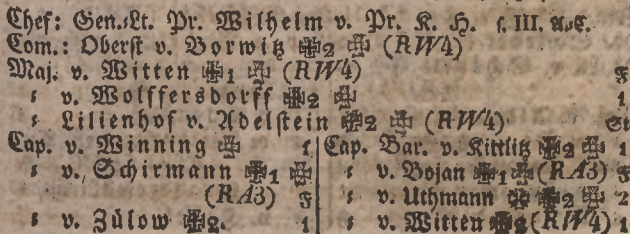 Chef: Gen.-Lt. Pr. Wilhelm v. Pr. K. H. s. III. A.C.
Com.: Oberst v. Borwitz ✠2 ✠ (RW4)
Maj. v. Witten ✠1 ✠ (RW4) F
: v. Wolffersdorff ✠2 ✠ 1
: Lilienhof v. Adelstein ✠2 ✠ (RW4) St
Cap. v. Winning ✠ 1
: v. Schirmann ✠1 ✠
(RA3) F
: v. Zülow ✠2. 1
Cap. Bar. v. Kittlitz ✠2 ✠ 1
: v. Bojan ✠1 ✠ (RA3) F
: v. Uthmann ✠ ✠2 ✠ 2
: v. Witten ✠2 (RW4) 1